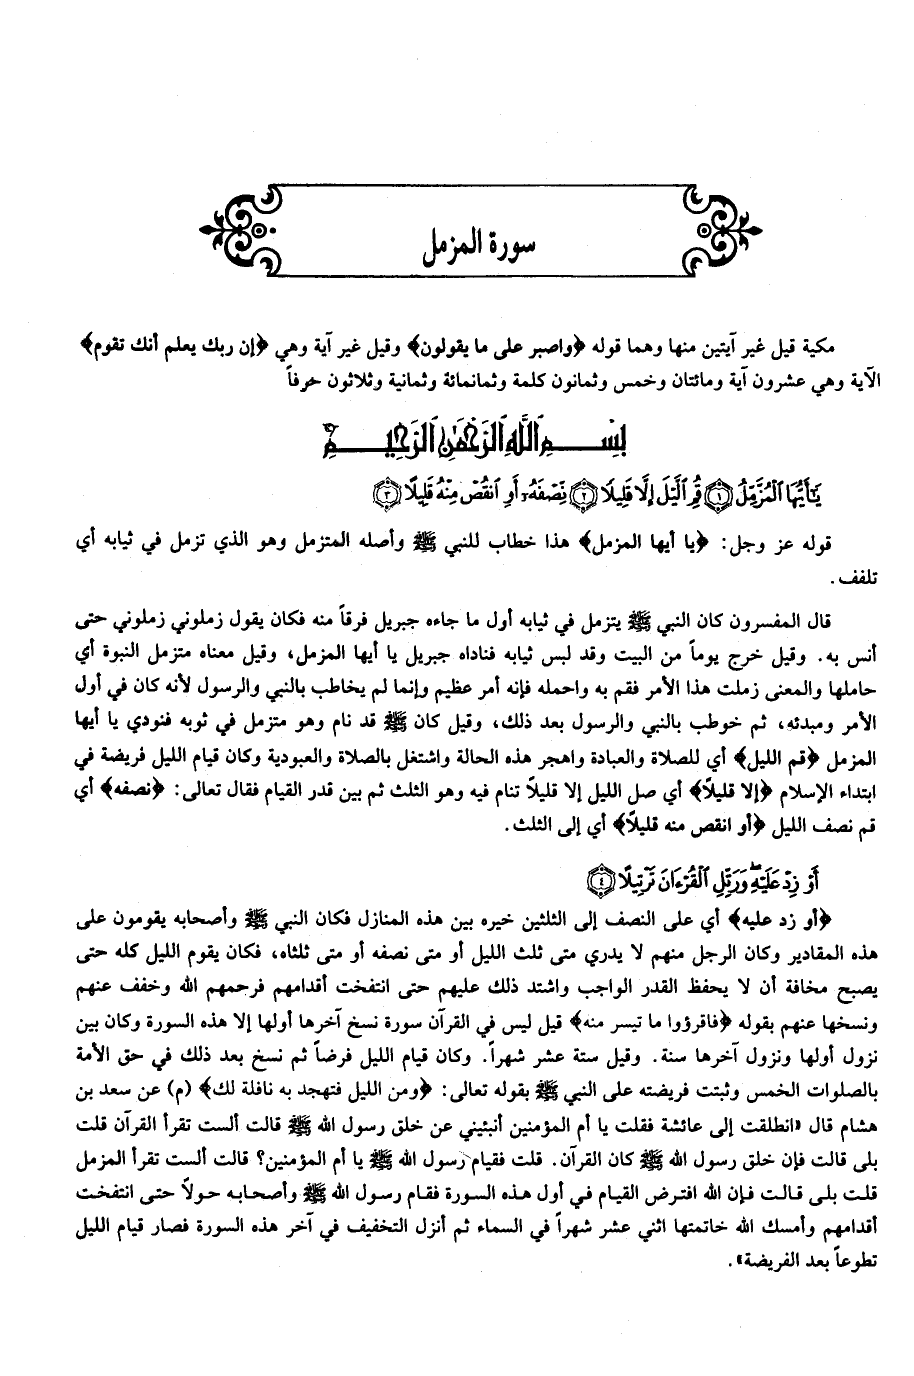 سورة المزمل
مكية قيل غير آيتين منها وهما قوله ﴿واصبر على ما يقولون﴾ وقيل غير آية وهي ﴿إن ربك يعلم أنك تقوم﴾
الآية وهي عشرون آية ومائتان وخمس وثمانون كلمة وثمانمائة وثمانية وثلاثون حرفاً
بِسْمِ اللَّهِ الرَّحْمَٰنِ الرَّحِيمِ
يَٰٓأَيُّهَا الْمُزَّمِّلُ ﴿١﴾ قُمِ الَّيْلَ إِلَّا قَلِيلًا ﴿٢﴾ نِّصْفَهُۥٓ أَوِ انقُصْ مِنْهُ قَلِيلًا ﴿٣﴾
قوله عز وجل: ﴿يا أيها المزمل﴾ هذا خطاب للنبي ﷺ وأصله المتزمل وهو الذي تزمل في ثيابه أي
تلفف.
قال المفسرون كان النبي ﷺ يتزمل في ثيابه أول ما جاءه جبريل فرقاً منه فكان يقول زملوني زملوني حتى
أنس به. وقيل خرج يوماً من البيت وقد لبس ثيابه فناداه جبريل يا أيها المزمل، وقيل معناه متزمل النبوة أي
حاملها والمعنى زملت هذا الأمر فقم به واحمله فإنه أمر عظيم وإنما لم يخاطب بالنبي والرسول لأنه كان في أول
الأمر ومبدئه، ثم خوطب بالنبي والرسول بعد ذلك، وقيل كان ﷺ قد نام وهو متزمل في ثوبه فنودي يا أيها
المزمل ﴿قم الليل﴾ أي للصلاة والعبادة واهجر هذه الحالة واشتغل بالصلاة والعبودية وكان قيام الليل فريضة في
ابتداء الإسلام ﴿إلا قليلاً﴾ أي صل الليل إلا قليلاً تنام فيه وهو الثلث ثم بين قدر القيام فقال تعالى: ﴿نصفه﴾ أي
قم نصف الليل ﴿أو انقص منه قليلاً﴾ أي إلى الثلث.
أَوْ زِدْ عَلَيْهِ وَرَتِّلِ الْقُرْءَانَ تَرْتِيلًا ﴿٤﴾
﴿أو زد عليه﴾ أي على النصف إلى الثلثين خيره بين هذه المنازل فكان النبي ﷺ وأصحابه يقومون على
هذه المقادير وكان الرجل منهم لا يدري متى ثلث الليل أو متى نصفه أو متى ثلثاه، فكان يقوم الليل كله حتى
يصبح مخافة أن لا يحفظ القدر الواجب واشتد ذلك عليهم حتى انتفخت أقدامهم فرحمهم الله وخفف عنهم
ونسخها عنهم بقوله ﴿فاقرؤوا ما تيسر منه﴾ قيل ليس في القرآن سورة نسخ آخرها أولها إلا هذه السورة وكان بين
نزول أولها ونزول آخرها سنة. وقيل ستة عشر شهراً. وكان قيام الليل فرضاً ثم نسخ بعد ذلك في حق الأمة
بالصلوات الخمس وثبتت فريضته على النبي ﷺ بقوله تعالى: ﴿ومن الليل فتهجد به نافلة لك﴾ (م) عن سعد بن
هشام قال «انطلقت إلى عائشة فقلت يا أم المؤمنين أنبئيني عن خلق رسول الله ﷺ قالت ألست تقرأ القرآن قلت
بلى قالت فإن خلق رسول الله ﷺ كان القرآن. قلت فقيام رسول الله ﷺ يا أم المؤمنين؟ قالت ألست تقرأ المزمل
قلت بلى قالت فإن الله افترض القيام في أول هذه السورة فقام رسول الله ﷺ وأصحابه حولاً حتى انتفخت
أقدامهم وأمسك الله خاتمتها اثني عشر شهراً في السماء ثم أنزل التخفيف في آخر هذه السورة فصار قيام الليل
تطوعاً بعد الفريضة».